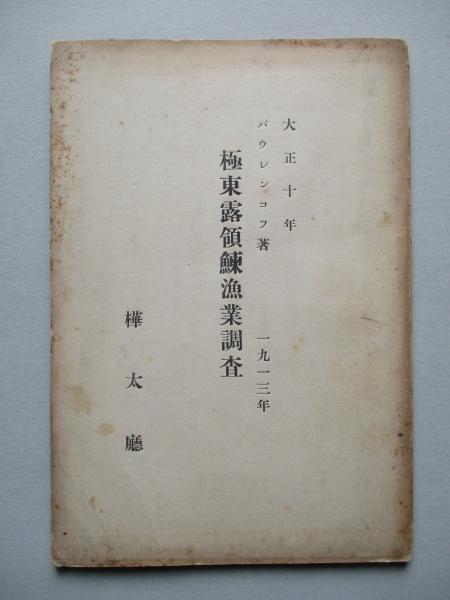 大正十年
パウレンコフ著 一九一三年
極東露領鰊漁業調査
樺太廳